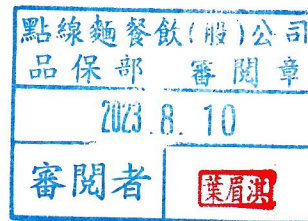 點線麵餐飲(股)公司
品保部 審閱章
2023.8.10
審閱者 葉眉淇